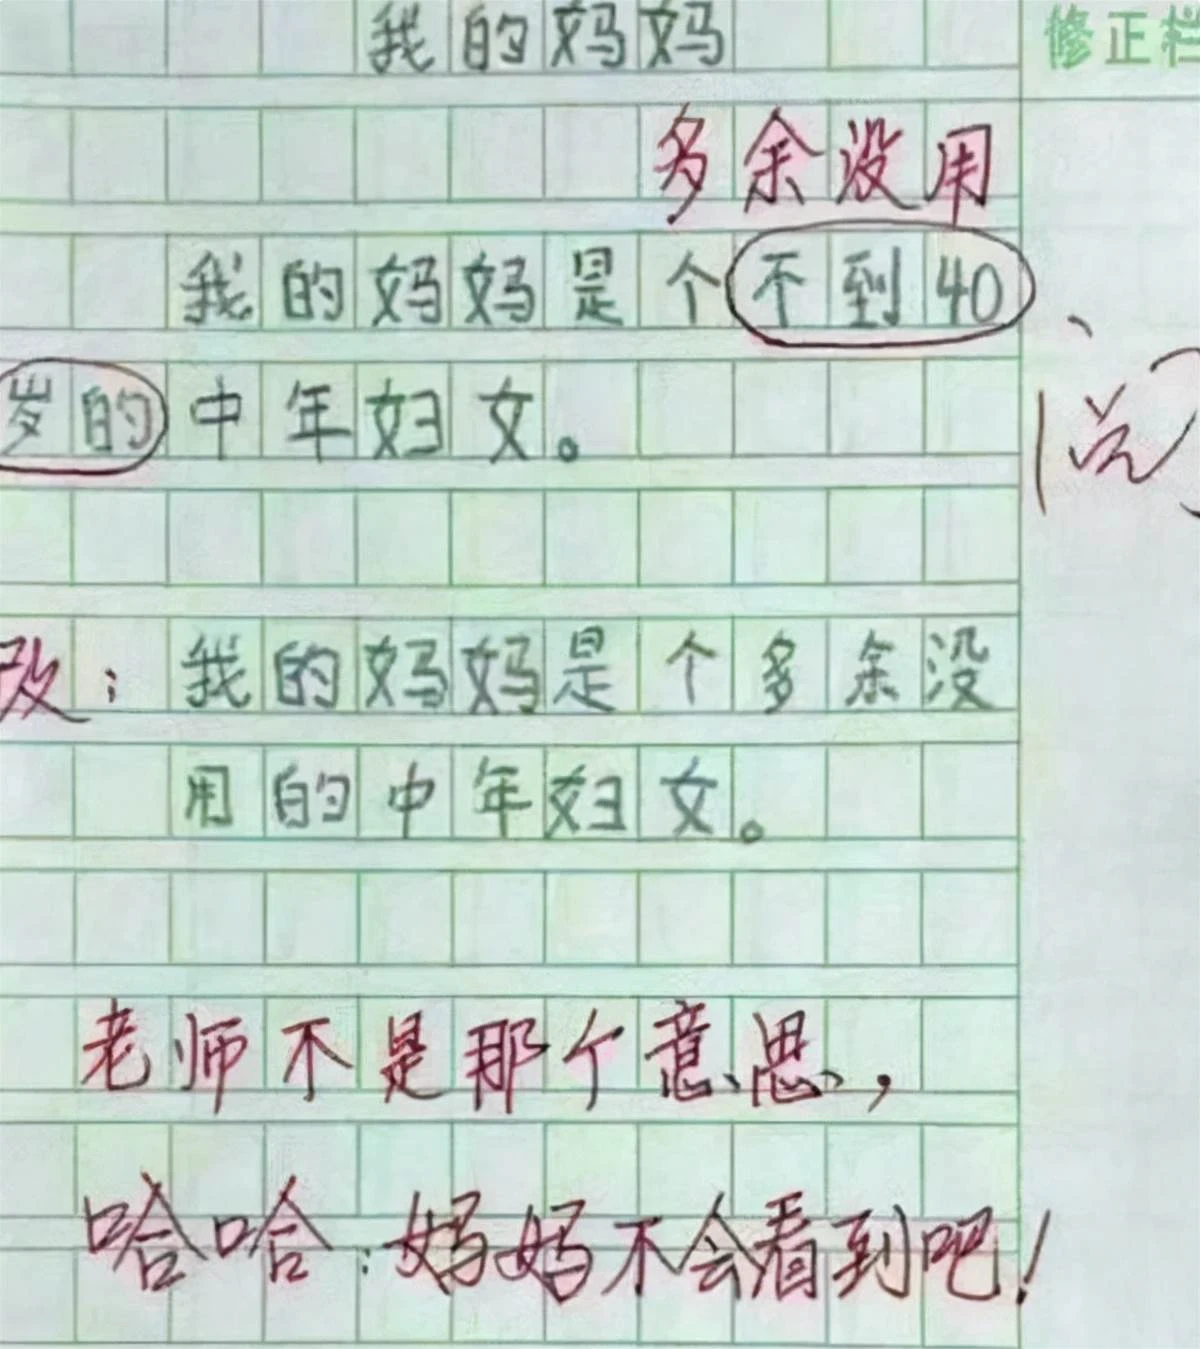 我的妈妈
修正栏
多余没用
我的妈妈是个不到40
岁的中年妇女。
改：我的妈妈是个多余没
用的中年妇女。
老师不是那个意思，
哈哈：妈妈不会看到吧！